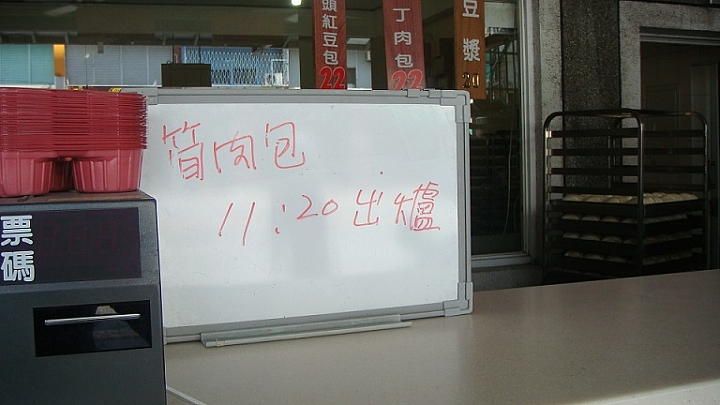 頭紅豆包
22
丁肉包
22
豆漿
20
筒肉包
11:20出爐
票碼